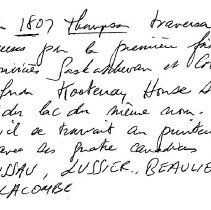 n 1807 Thompson traversa
par la première foi
Saskatchewan et Co
Kootenay House
du lac du même nom.
il se trouvait au printem
avec ses quatre canadiens
SSAU, LUSSIER, BEAULIE
LACOMBE